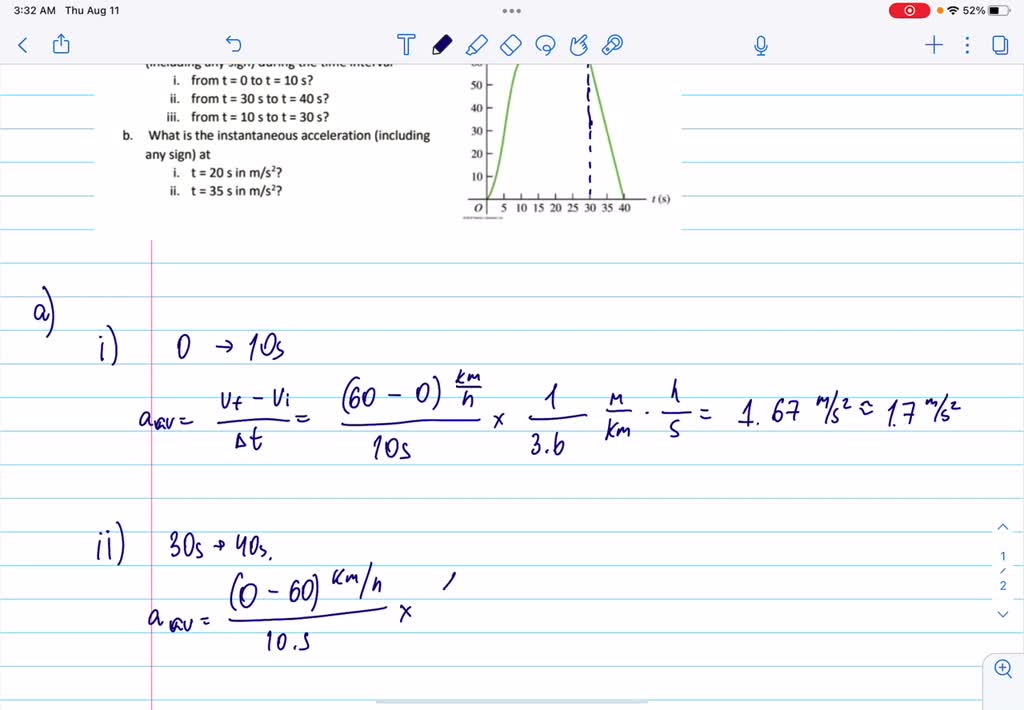 3:32 AM Thu Aug 11
52%
i. from t = 0 to t = 10 s?
ii. from t = 30 s to t = 40 s?
iii. from t = 10 s to t = 30 s?
b. What is the instantaneous acceleration (including
any sign) at
i. t = 20 s in m/s²?
ii. t = 35 s in m/s²?
50
40
30
20
10
O 5 10 15 20 25 30 35 40 t (s)
a)
i) 0 → 10s
a av = (Vf - Vi)/Δt = (60 - 0) km/h / 10s × 1/3.6 m/km · h/s = 1.67 m/s² ≈ 1.7 m/s²
ii) 30s → 40s.
a av = (0 - 60) km/h / 10.s ×
1
/
2